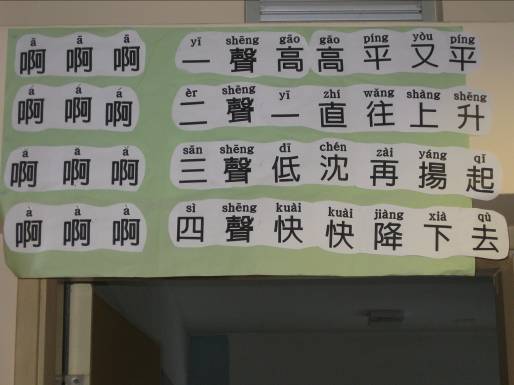 ā ā ā yī shēng gāo gāo píng yòu píng
啊 啊 啊 一 聲 高 高 平 又 平
á á á èr shēng yī zhí wǎng shàng shēng
啊 啊 啊 二 聲 一 直 往 上 升
ǎ ǎ ǎ sān shēng dī chén zài yáng qǐ
啊 啊 啊 三 聲 低 沈 再 揚 起
à à à sì shēng kuài kuài jiàng xià qù
啊 啊 啊 四 聲 快 快 降 下 去